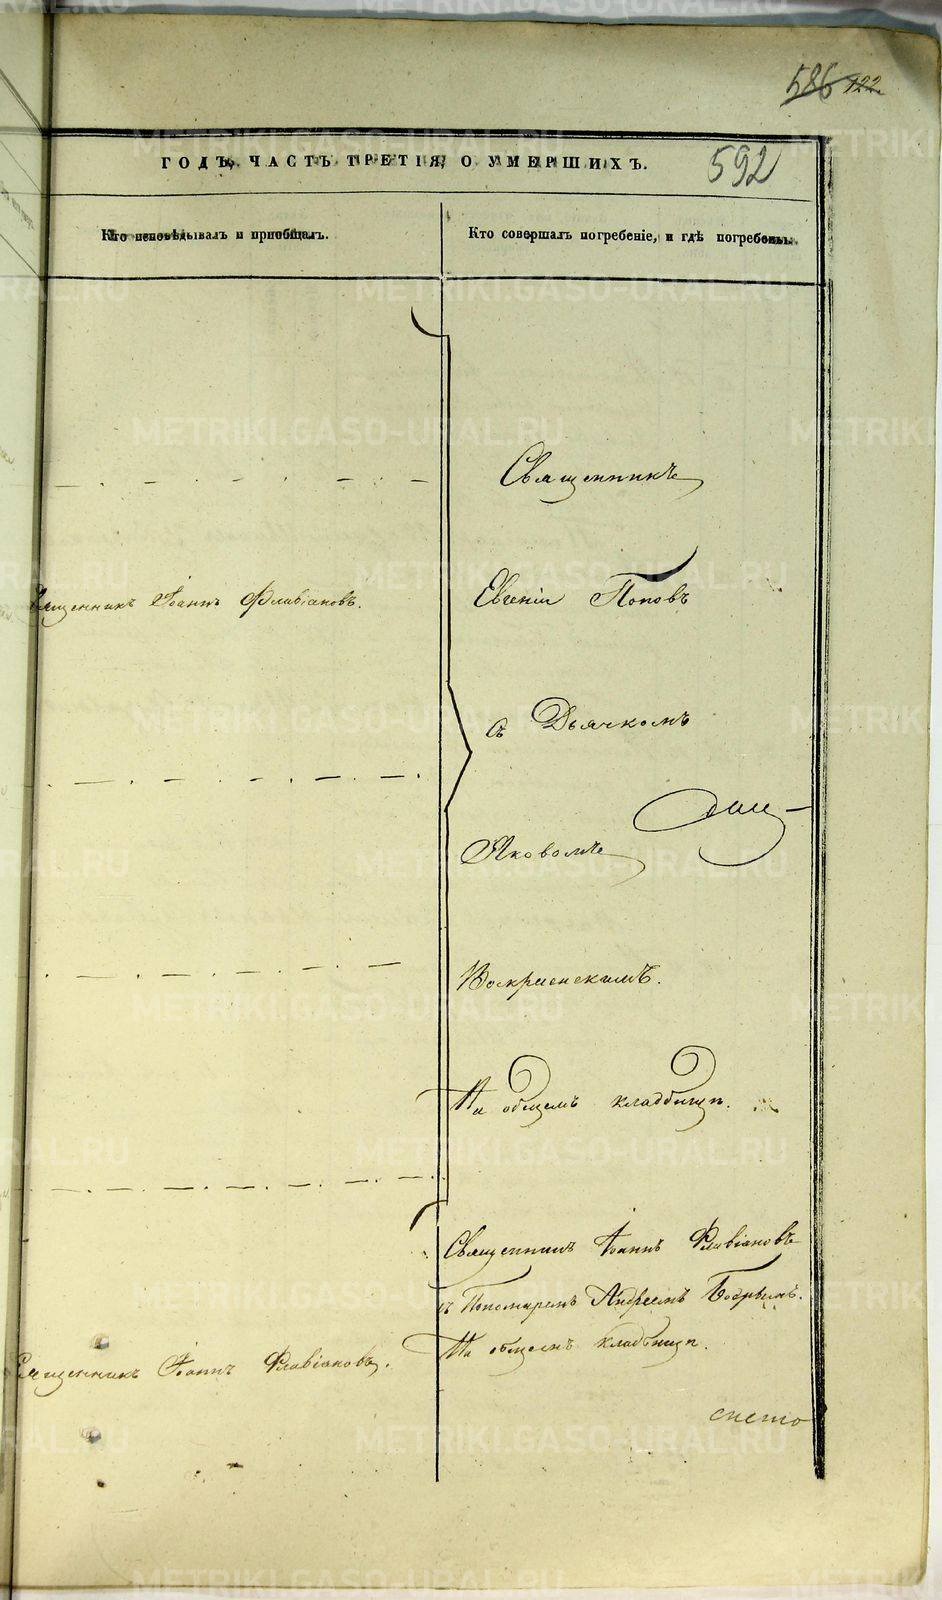 586 122
ГОДЪ, ЧАСТЬ ТРЕТІЯ, О УМЕРШИХЪ.
592
Кто исповѣдывалъ и приобщалъ.
Кто совершалъ погребеніе, и гдѣ погребены.
Священникъ
Священникъ Іоаннъ Флавіановъ.
Евгеній Поповъ
съ Дьячкомъ
Яковомъ
Воскресенскимъ.
На общемъ кладбищѣ.
Священникъ Іоаннъ Флавіановъ
съ Пономаремъ Андреемъ Бобровымъ.
На общемъ кладбищѣ.
Священникъ Іоаннъ Флавіановъ.
METRIKI.GASO-URAL.RU